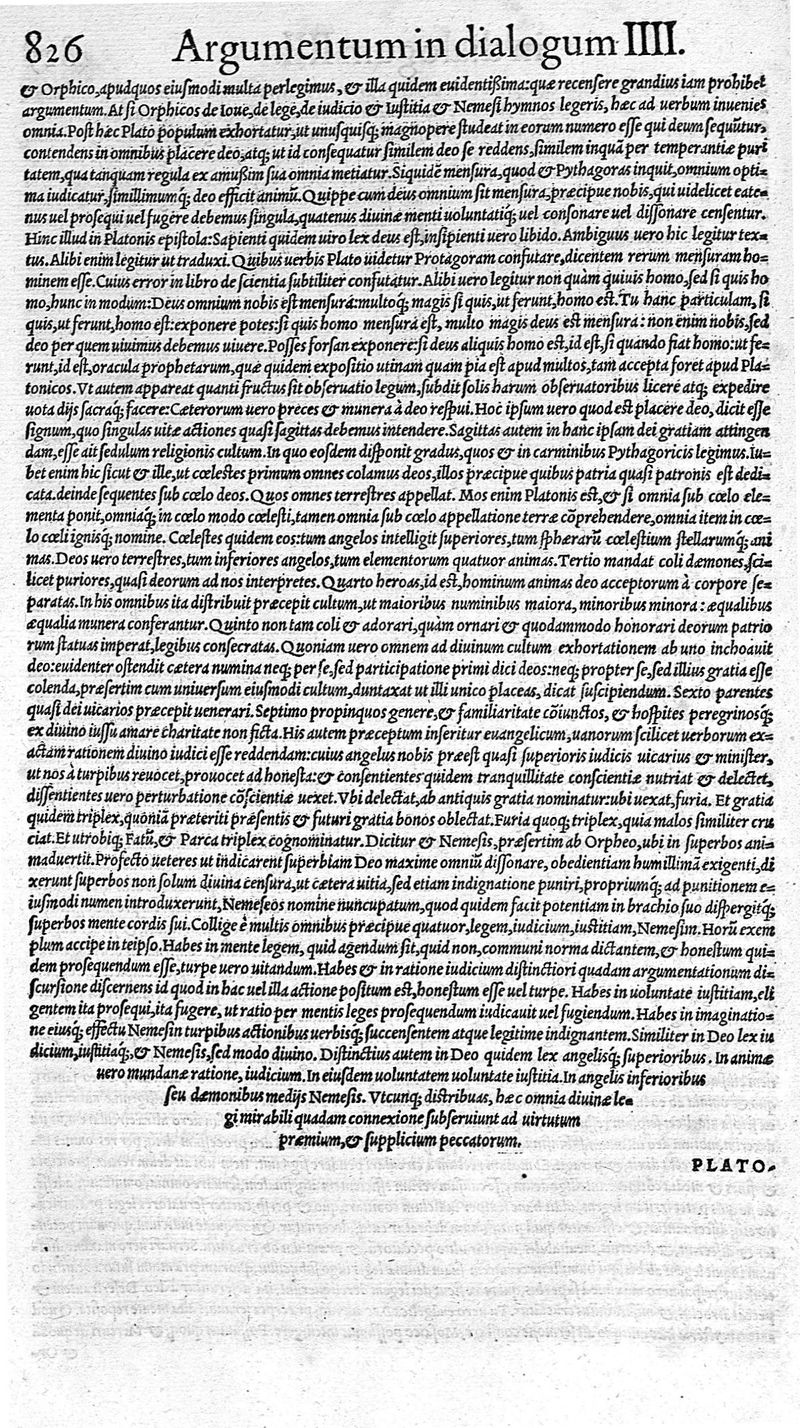 826 Argumentum in dialogum IIII.
& Orphico, apud quos eiusmodi multa perlegimus, & illa quidem euidentißima: quæ recensere grandius iam prohibet
argumentum. At si Orphicos de Ioue, de lege, de iudicio & Iustitia & Nemesi hymnos legeris, hæc ad uerbum inuenies
omnia. Post hæc Plato populum exhortatur, ut unusquisq; magnopere studeat in eorum numero esse qui deum sequūtur,
contendens in omnibus placere deo, atq; ut id consequatur similem deo se reddens, similem inquā per temperantiæ puri
tatem, qua tanquam regula ex amußim sua omnia metiatur. Siquidē mensura, quod & Pythagoras inquit, omnium opti=
ma iudicatur, simillimumq; deo efficit animū. Quippe cum deus omnium sit mensura, præcipue nobis, qui uidelicet eate=
nus uel prosequi uel fugere debemus singula, quatenus diuinæ menti uoluntatiq; uel consonare uel dissonare censentur.
Hinc illud in Platonis epistola: Sapienti quidem uiro lex deus est, insipienti uero libido. Ambiguus uero hic legitur tex=
tus. Alibi enim legitur ut traduxi. Quibus uerbis Plato uidetur Protagoram confutare, dicentem rerum mensuram ho=
minem esse. Cuius error in libro de scientia subtiliter confutatur. Alibi uero legitur non quàm quiuis homo, sed si quis ho
mo, hunc in modum: Deus omnium nobis est mensura: multoq; magis si quis, ut ferunt, homo est. Tu hanc particulam, si
quis, ut ferunt, homo est: exponere potes: si quis homo mensura est, multo magis deus est mensura: non enim nobis, sed
deo per quem uiuimus debemus uiuere. Posses forsan exponere: si deus aliquis homo est, id est, si quando fiat homo: ut fe=
runt, id est, oracula prophetarum, quæ quidem expositio utinam quam pia est apud multos, tam accepta foret apud Pla=
tonicos. Vt autem appareat quanti fructus sit obseruatio legum, subdit solis harum obseruatoribus licere atq; expedire
uota dijs sacraq; facere: Cæterorum uero preces & munera à deo respui. Hoc ipsum uero quod est placere deo, dicit esse
signum, quo singulas uitæ actiones quasi sagittas debemus intendere. Sagittas autem in hanc ipsam dei gratiam attingen
dam, esse ait sedulum religionis cultum. In quo eosdem disponit gradus, quos & in carminibus Pythagoricis legimus. Iu=
bet enim hic sicut & ille, ut cœlestes primum omnes colamus deos, illos præcipue quibus patria quasi patronis est dedi=
cata. deinde sequentes sub cœlo deos. Quos omnes terrestres appellat. Mos enim Platonis est, & si omnia sub cœlo ele=
menta ponit, omniaq; in cœlo modo cœlesti, tamen omnia sub cœlo appellatione terræ cōprehendere, omnia item in cœ=
lo cœli ignisq; nomine. Cœlestes quidem eos: tum angelos intelligit superiores, tum sphærarū cœlestium stellarumq; ani
mas. Deos uero terrestres, tum inferiores angelos, tum elementorum quatuor animas. Tertio mandat coli dæmones, sci=
licet puriores, quasi deorum ad nos interpretes. Quarto heroas, id est, hominum animas deo acceptorum à corpore se=
paratas. In his omnibus ita distribuit præcepit cultum, ut maioribus numinibus maiora, minoribus minora: æqualibus
æqualia munera conferantur. Quinto non tam coli & adorari, quàm ornari & quodammodo honorari deorum patrio
rum statuas imperat, legibus consecratas. Quoniam uero omnem ad diuinum cultum exhortationem ab uno inchoauit
deo: euidenter ostendit cætera numina neq; per se, sed participatione primi dici deos: neq; propter se, sed illius gratia esse
colenda, præsertim cum uniuersum eiusmodi cultum, duntaxat ut illi unico placeas, dicat suscipiendum. Sexto parentes
quasi dei uicarios præcepit uenerari. Septimo propinquos genere, & familiaritate cōiunctos, & hospites peregrinosq;
ex diuino iussu amare charitate non ficta. His autem præceptum inseritur euangelicum, uanorum scilicet uerborum ex=
actam rationem diuino iudici esse reddendam: cuius angelus nobis præest quasi superioris iudicis uicarius & minister,
ut nos à turpibus reuocet, prouocet ad honesta: & consentientes quidem tranquillitate conscientiæ nutriat & delectet,
dissentientes uero perturbatione cōscientiæ uexet. Vbi delectat, ab antiquis gratia nominatur: ubi uexat, furia. Et gratia
quidem triplex, quoniā præteriti præsentis & futuri gratia bonos oblectat. Furia quoq; triplex, quia malos similiter cru
ciat. Et utrobiq; Fatū, & Parca triplex cognominatur. Dicitur & Nemesis, præsertim ab Orpheo, ubi in superbos ani=
maduertit. Profecto ueteres ut indicarent superbiam Deo maxime omniū dissonare, obedientiam humillimā exigenti, di
xerunt superbos non solum diuina censura, ut cætera uitia, sed etiam indignatione puniri, propriumq; ad punitionem e=
iusmodi numen introduxerunt, Nemeseos nomine nuncupatum, quod quidem facit potentiam in brachio suo dispergitq;
superbos mente cordis sui. Collige è multis omnibus præcipue quatuor, legem, iudicium, iustitiam, Nemesim. Horū exem
plum accipe in teipso. Habes in mente legem, quid agendum sit, quid non, communi norma dictantem, & honestum qui=
dem prosequendum esse, turpe uero uitandum. Habes & in ratione iudicium distinctiori quadam argumentationum di=
scursione discernens id quod in hac uel illa actione positum est, honestum esse uel turpe. Habes in uoluntate iustitiam, eli
gentem ita prosequi, ita fugere, ut ratio per mentis leges prosequendum iudicauit uel fugiendum. Habes in imaginatio=
ne eiusq; effectu Nemesin turpibus actionibus uerbisq; succensentem atque legitime indignantem. Similiter in Deo lex iu
dicium, iustitiaq;, & Nemesis, sed modo diuino. Distinctius autem in Deo quidem lex angelisq; superioribus. In animæ
uero mundanæ ratione, iudicium. In eiusdem uoluntatem uoluntate iustitia. In angelis inferioribus
seu dæmonibus medijs Nemesis. Vtcunq; distribuas, hæc omnia diuinæ le=
gi mirabili quadam connexione subseruiunt ad uirtutum
præmium, & supplicium peccatorum.
PLATO-